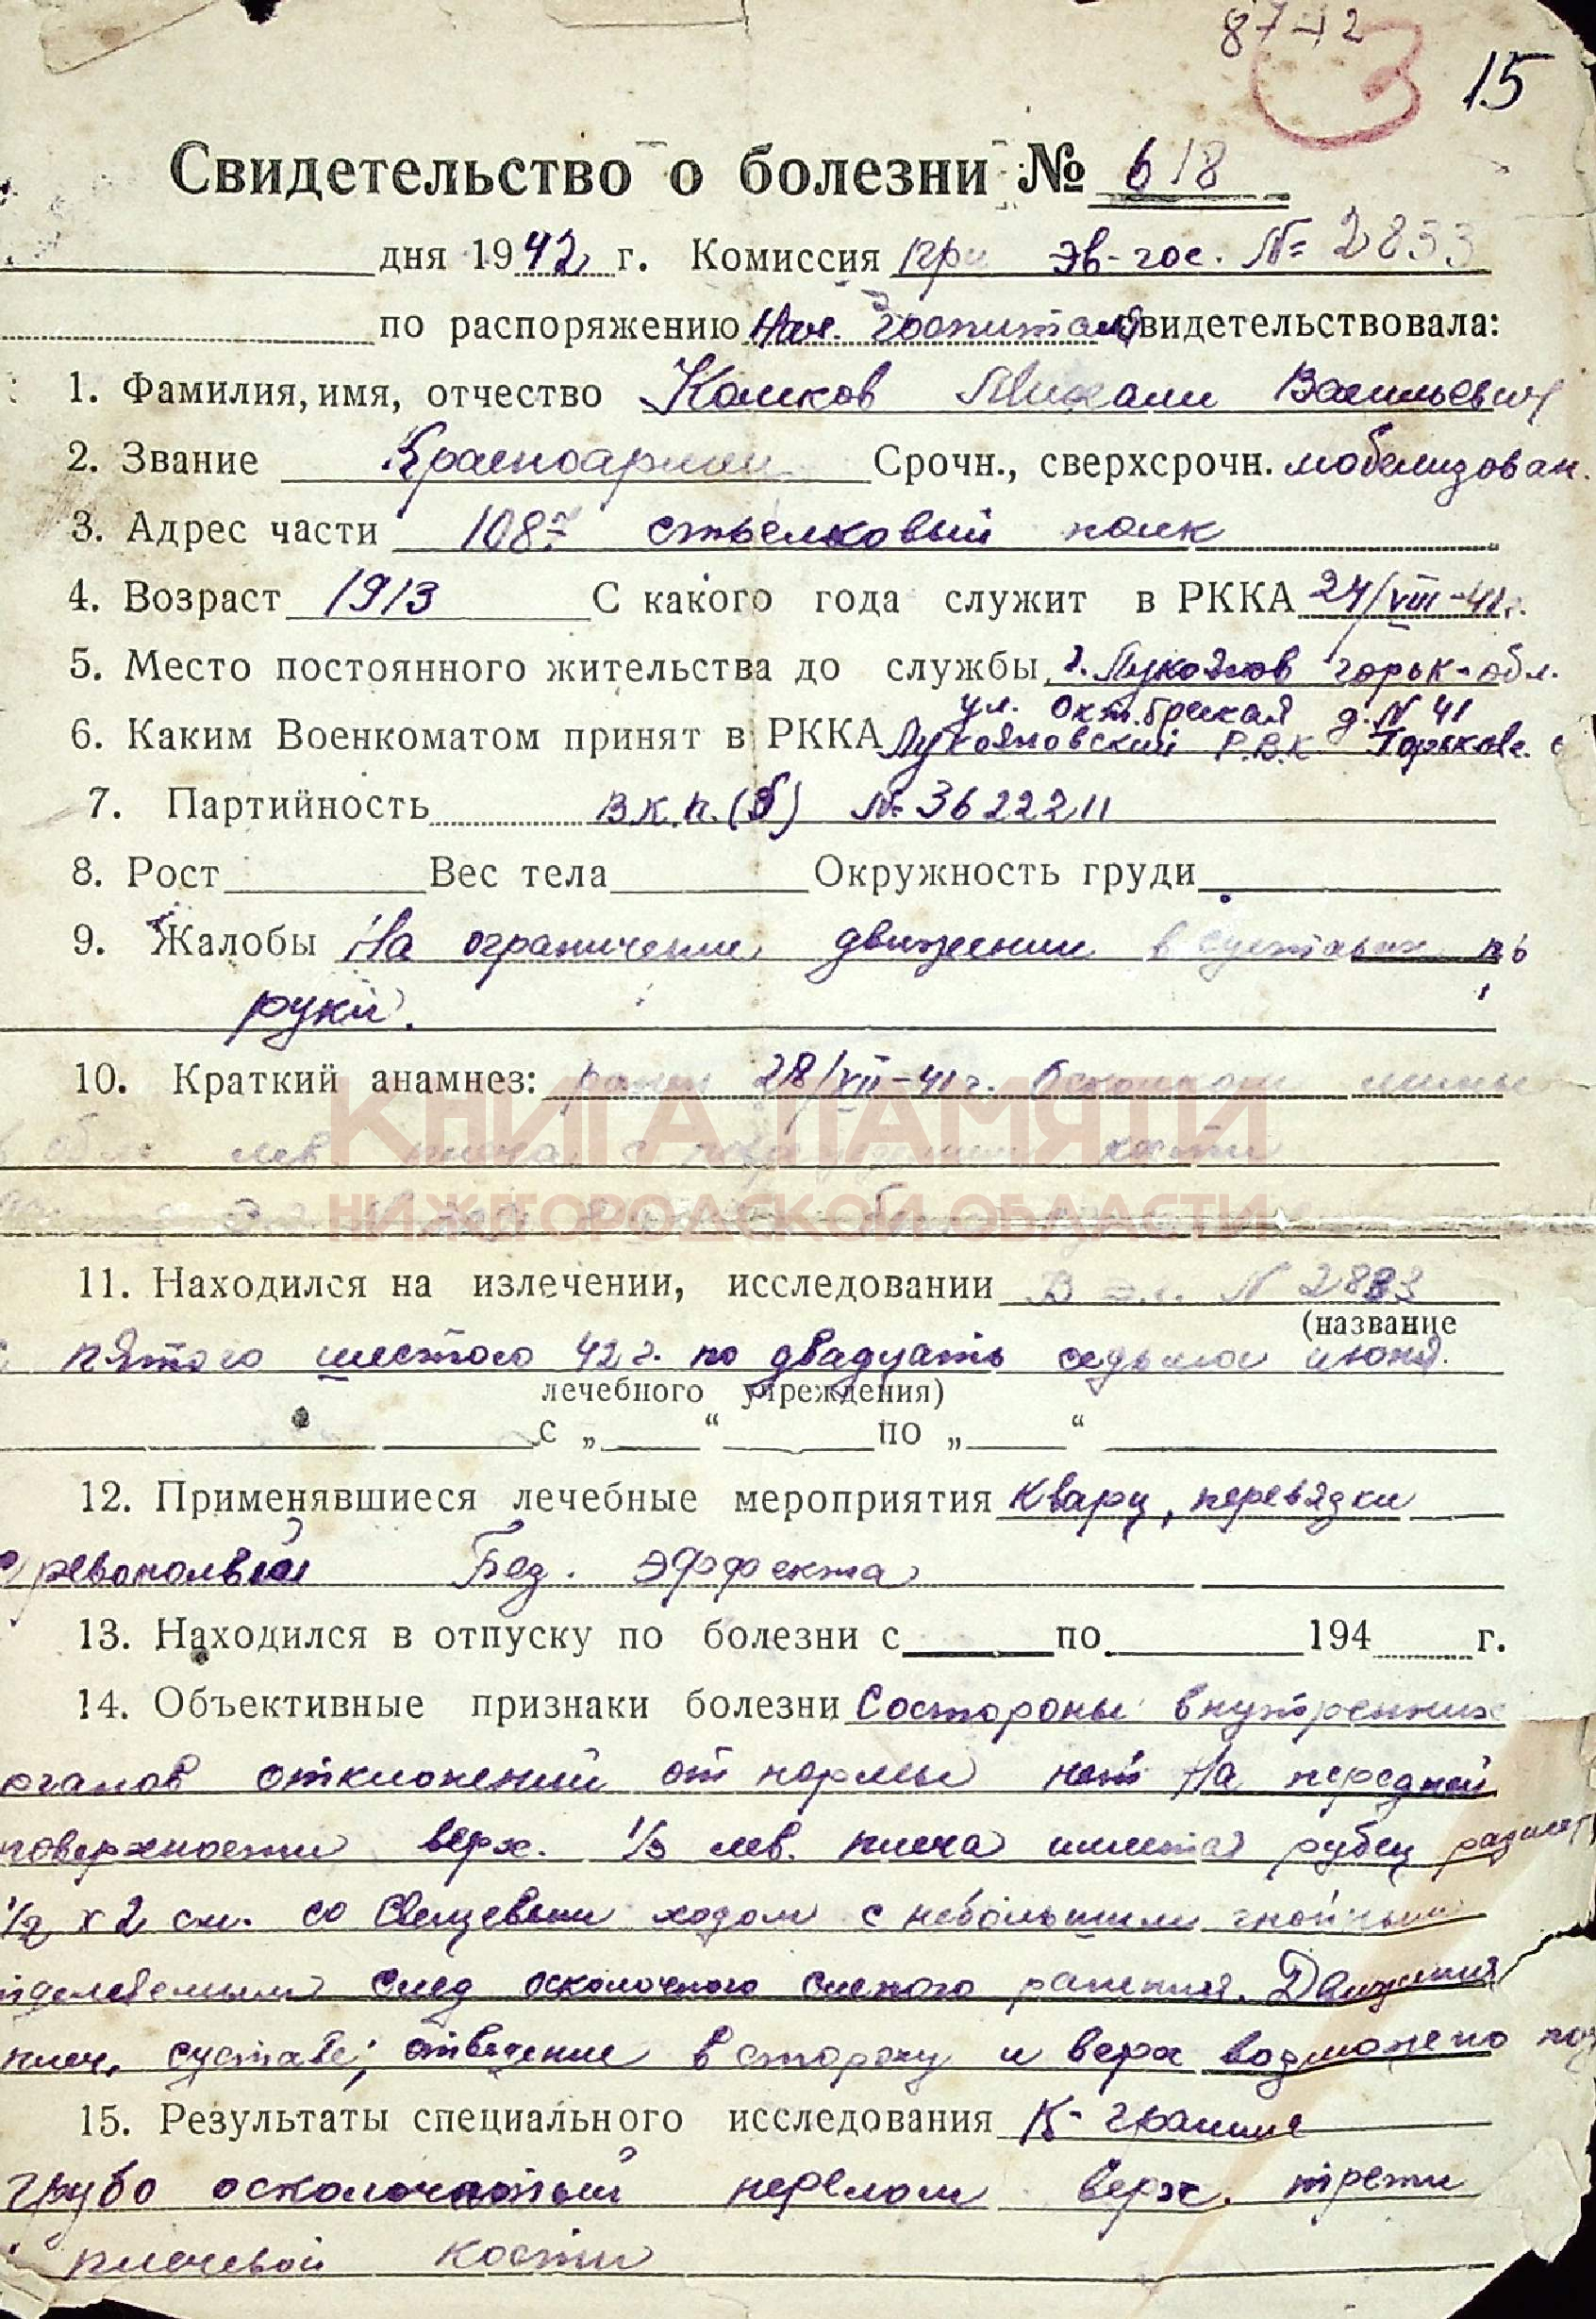 8742
3 15
Свидетельство о болезни № 618
дня 1942 г. Комиссия при эв-гос. № 2833
по распоряжению Нач. госпиталя свидетельствовала:
1. Фамилия, имя, отчество Михаил Васильевич
2. Звание Красноармеец Срочн., сверхсрочн. мобилизован.
3. Адрес части 1087 стрелковый полк
4. Возраст 1913 С какого года служит в РККА 24/VIII-41г.
5. Место постоянного жительства до службы г. Лукоянов горьк-обл.
ул. Октябрьская д. N 41
6. Каким Военкоматом принят в РККА Лукояновский Р.В.К Горьков.
7. Партийность В К.П.(б) № 3622211
8. Рост Вес тела Окружность груди
9. Жалобы На ограничение движении в суставах
руки.
10. Краткий анамнез: ранен 28/VII-41г. Осколком мины
лев. плеча с кости
КНИГА ПАМЯТИ
НИЖЕГОРОДСКОЙ ОБЛАСТИ
11. Находился на излечении, исследовании В N 2883
(название
пятого шестого 42 г. по двадцать седьмое июня.
лечебного учреждения)
с „ “ по „ “
12. Применявшиеся лечебные мероприятия Кварц, перевязки
Без. эффекта
13. Находился в отпуску по болезни с по 194 г.
14. Объективные признаки болезни Состороны внутренних
органов отклонений от нормы нет На передней
поверхности верх. 1/3 лев. плеча имеется рубец размер
1/2 х 2 см. со Свищевым ходом с небольшим гнойным
отделяемым след осколочного слепого ранения. Движения
плеч. суставе; отведение в сторону и верх возможно
15. Результаты специального исследования R-грамма
грубо осколочатый перелом верх. трети
плечевой кости